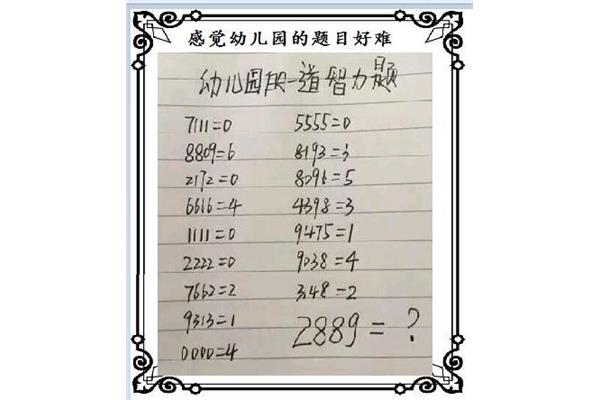 感觉幼儿园的题目好难
幼儿园段一道智力题
7111=0
8809=6
2172=0
6616=4
1111=0
2222=0
7662=2
9313=1
0000=4
5555=0
8193=3
8096=5
4398=3
9475=1
9038=4
3148=2
2889=?